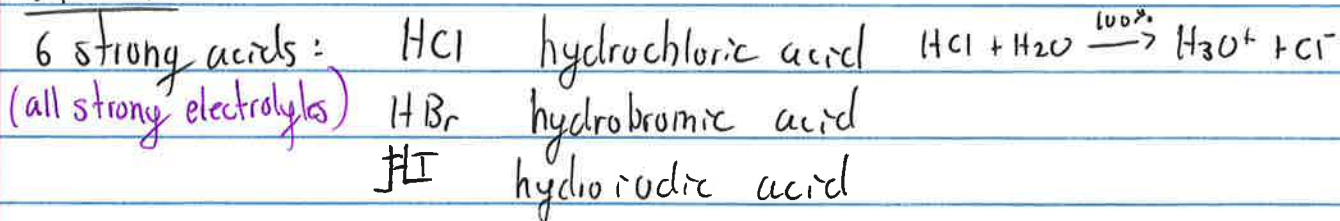 6 strong acids: HCl hydrochloric acid HCl + H2O 100%→ H3O+ + Cl-
(all strong electrolytes) HBr hydrobromic acid
HI hydroiodic acid